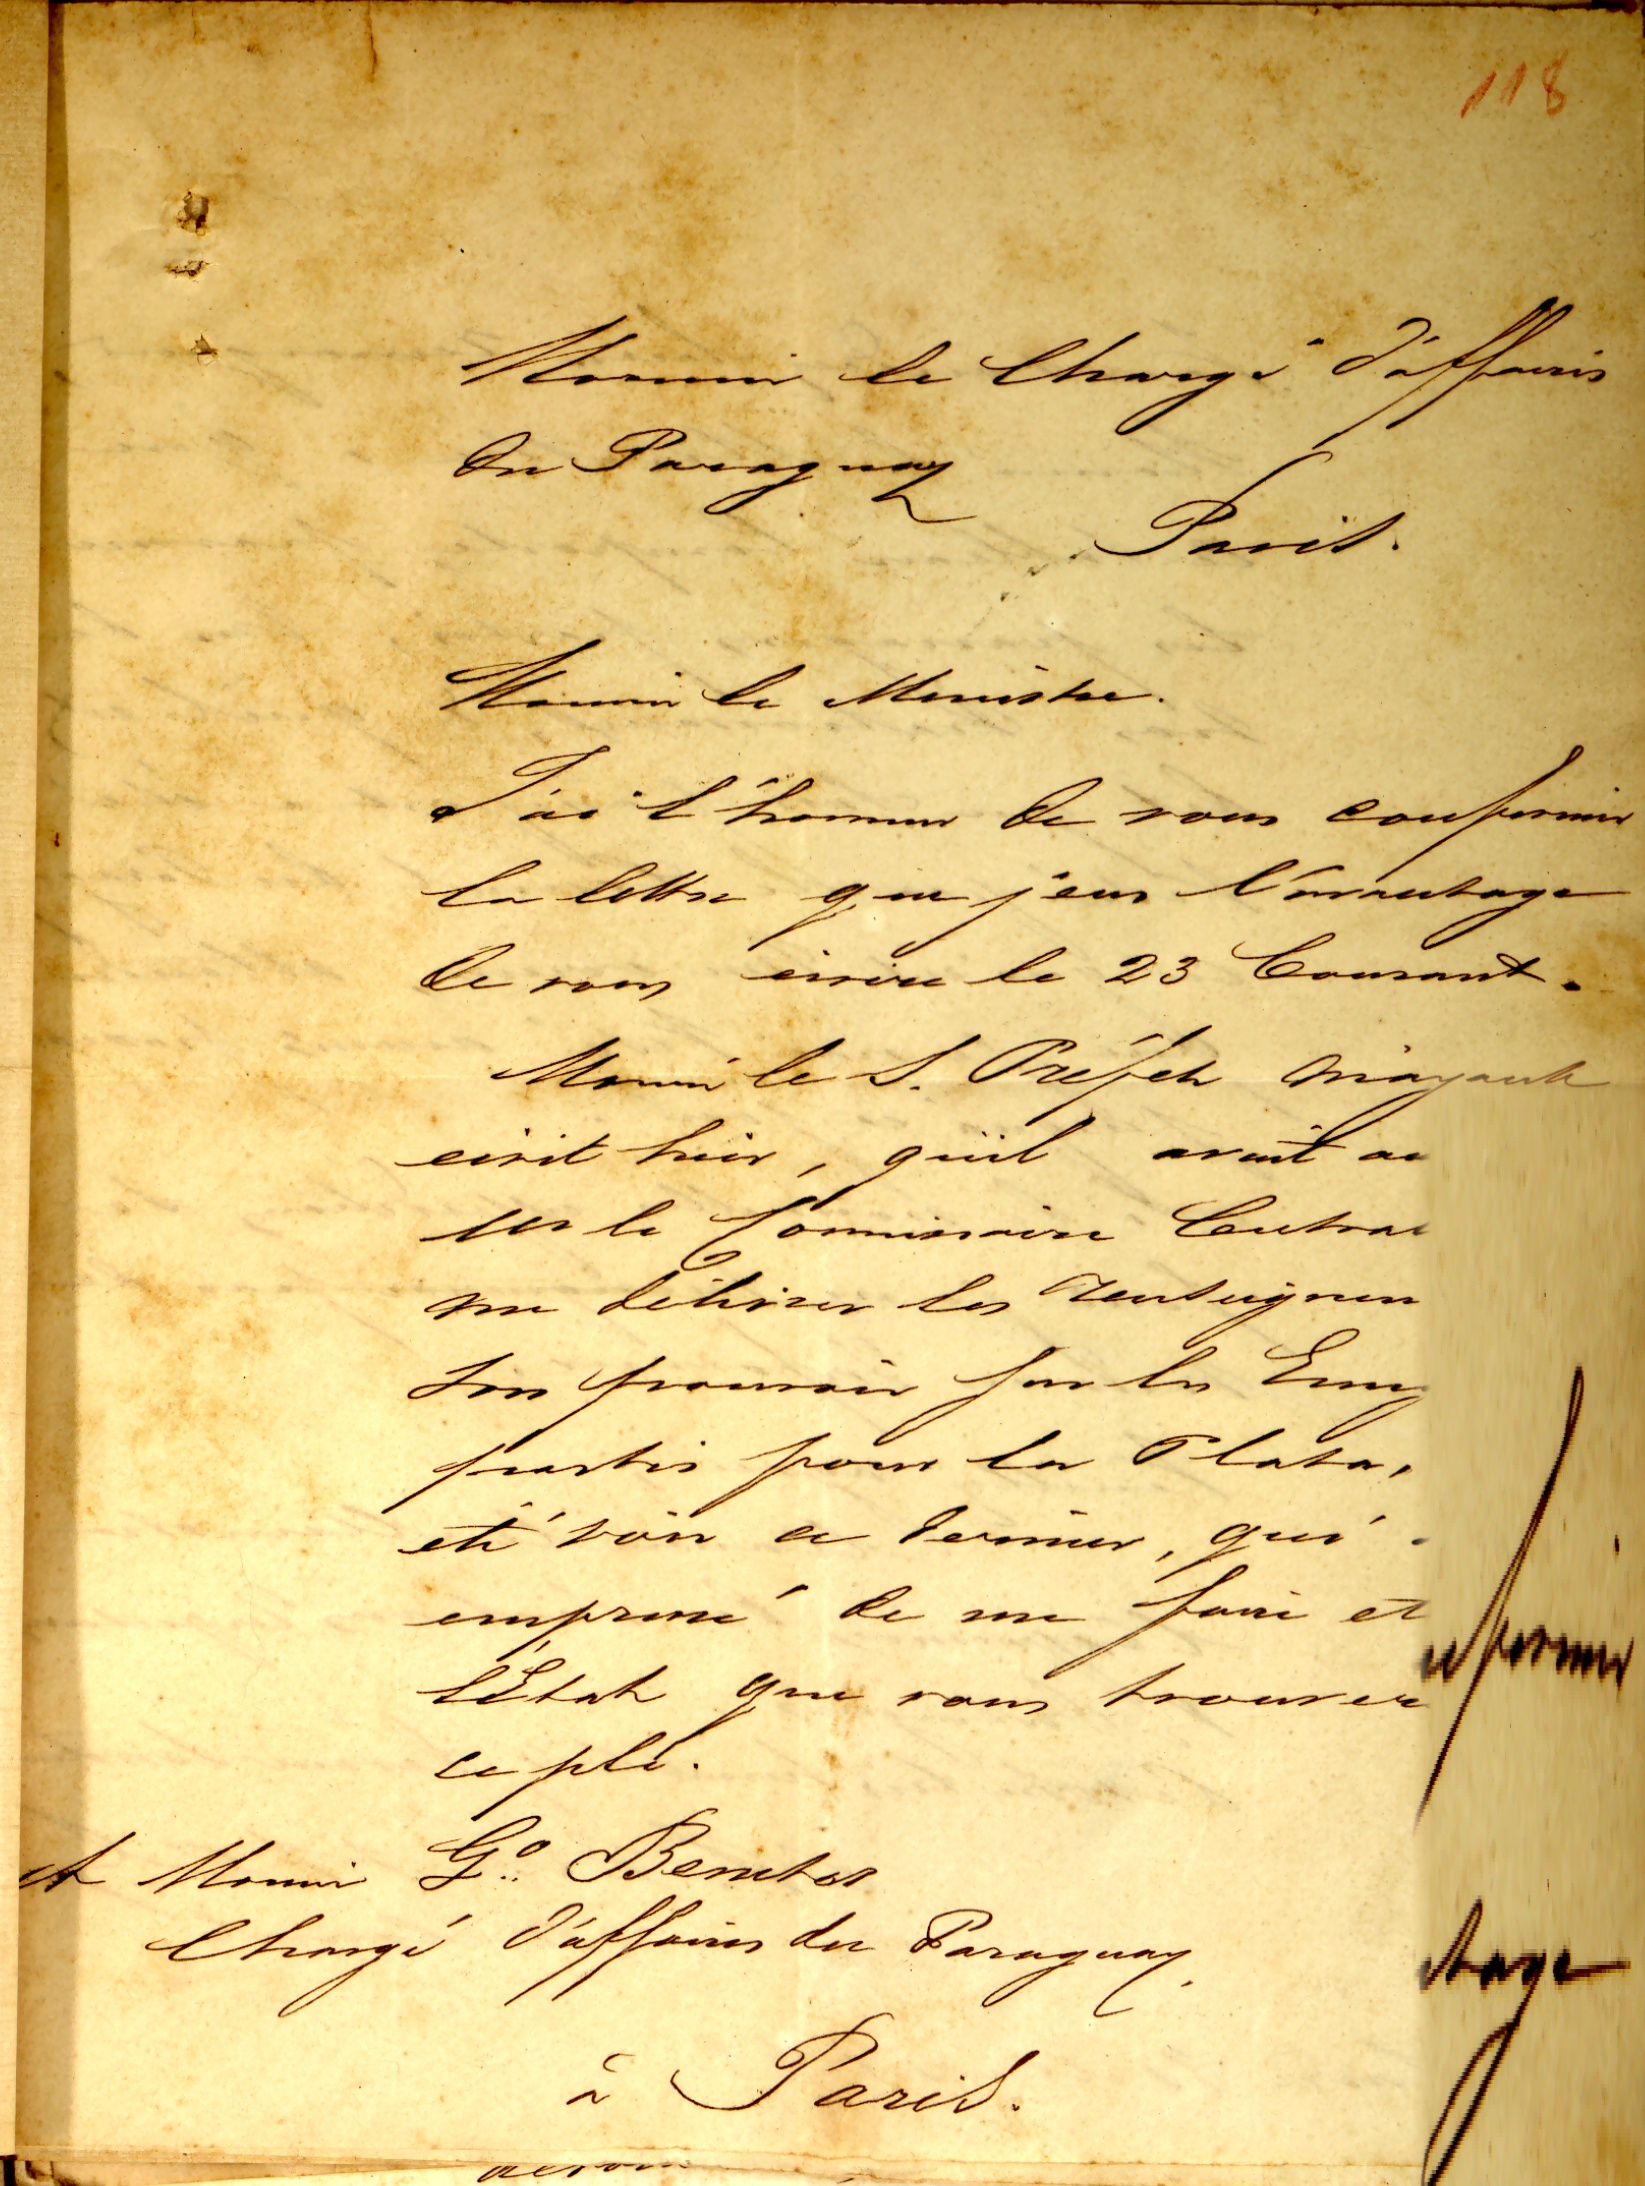 118
Monsieur le Chargé d'affaires
du Paraguay
Paris.
Monsieur le Ministre.
J'ai l'honneur de vous confirmer
la lettre que j'eus l'avantage
de vous écrire le 23 Courant.
Monsieur le S. Préfet m'ayant
écrit hier, qu'il avait au
le Commissaire Central
me délivrer les renseignem
son pouvoir sur les Emig
partis pour la Plata,
été voir ce dernier, qui
empressé de me faire et
l'Etat que vous trouvere
ce pli.
A Monsieur Go. Benites
Chargé d'affaires du Paraguay.
à Paris.
nfirmer
tage